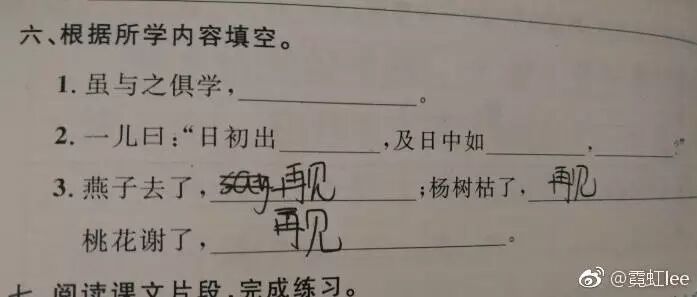 六、根据所学内容填空。
1. 虽与之俱学，____________。
2. 一儿曰：“日初出________，及日中如________，______。”
3. 燕子去了，say 再见；杨树枯了，再见
桃花谢了，再见。
七、阅读课文片段，完成练习。
@霓虹lee